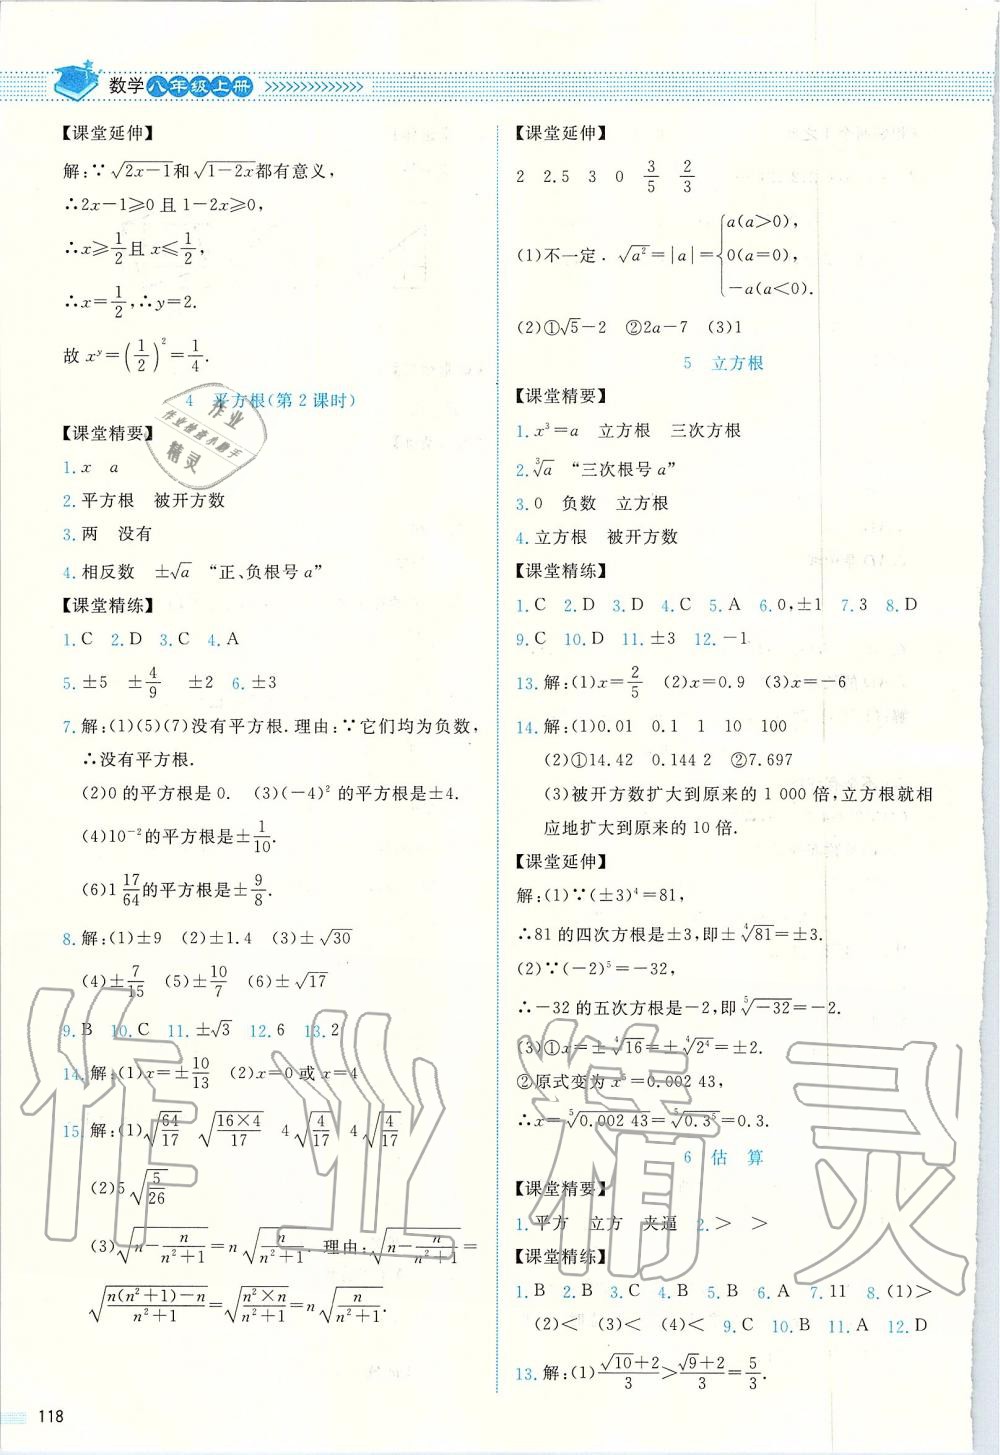 数学八年级上册
【课堂延伸】
解:∵√(2x-1)和√(1-2x)都有意义,
∴2x-1≥0且1-2x≥0,
∴x≥1/2且x≤1/2,
∴x=1/2,∴y=2.
故 x^y=(1/2)²=1/4.
4 平方根(第2课时)
【课堂精要】
1. x a
2. 平方根 被开方数
3. 两 没有
4. 相反数 ±√a “正、负根号a”
【课堂精练】
1. C 2. D 3. C 4. A
5. ±5 ±4/9 ±2 6. ±3
7. 解:(1)(5)(7)没有平方根.理由:∵它们均为负数,
∴没有平方根.
(2)0的平方根是0. (3)(-4)²的平方根是±4.
(4)10⁻²的平方根是±1/10.
(6)1 17/64的平方根是±9/8.
8. 解:(1)±9 (2)±1.4 (3)±√30
(4)±7/15 (5)±10/7 (6)±√17
9. B 10. C 11. ±√3 12. 6 13. 2
14. 解:(1)x=±10/13 (2)x=0或x=4
15. 解:(1)√(64/17) √((16×4)/17) 4√(4/17) 4√(4/17)
(2)5√(5/26)
(3)√(n-n/(n²+1))=n√(n/(n²+1)). 理由:√(n-n/(n²+1))=
√((n(n²+1)-n)/(n²+1))=√((n²×n)/(n²+1))=n√(n/(n²+1)).
118
【课堂延伸】
2 2.5 3 0 3/5 2/3
(1)不一定. √(a²)=|a|={a(a>0),
0(a=0),
-a(a<0).
(2)①√5-2 ②2a-7 (3)1
5 立方根
【课堂精要】
1. x³=a 立方根 三次方根
2. ∛a “三次根号a”
3. 0 负数 立方根
4. 立方根 被开方数
【课堂精练】
1. C 2. D 3. D 4. C 5. A 6. 0,±1 7. 3 8. D
9. C 10. D 11. ±3 12. -1
13. 解:(1)x=2/5 (2)x=0.9 (3)x=-6
14. 解:(1)0.01 0.1 1 10 100
(2)①14.42 0.144 2 ②7.697
(3)被开方数扩大到原来的1 000倍,立方根就相
应地扩大到原来的10倍.
【课堂延伸】
解:(1)∵(±3)⁴=81,
∴81的四次方根是±3,即±⁴√81=±3.
(2)∵(-2)⁵=-32,
∴-32的五次方根是-2,即⁵√(-32)=-2.
(3)①x=±⁴√16=±⁴√(2⁴)=±2.
②原式变为x⁵=0.002 43,
∴x=⁵√(0.002 43)=⁵√(0.3⁵)=0.3.
6 估算
【课堂精要】
1. 平方 立方 夹逼 2. > >
【课堂精练】
1. B 2. B 3. C 4. B 5. B 6. A 7. 11 8. (1)>
(2)< (3)< (4)< 9. C 10. B 11. A 12. D
13. 解:(1)(√10+2)/3>(√9+2)/3=5/3.
作业
作业检查小助手
精灵
作业精灵